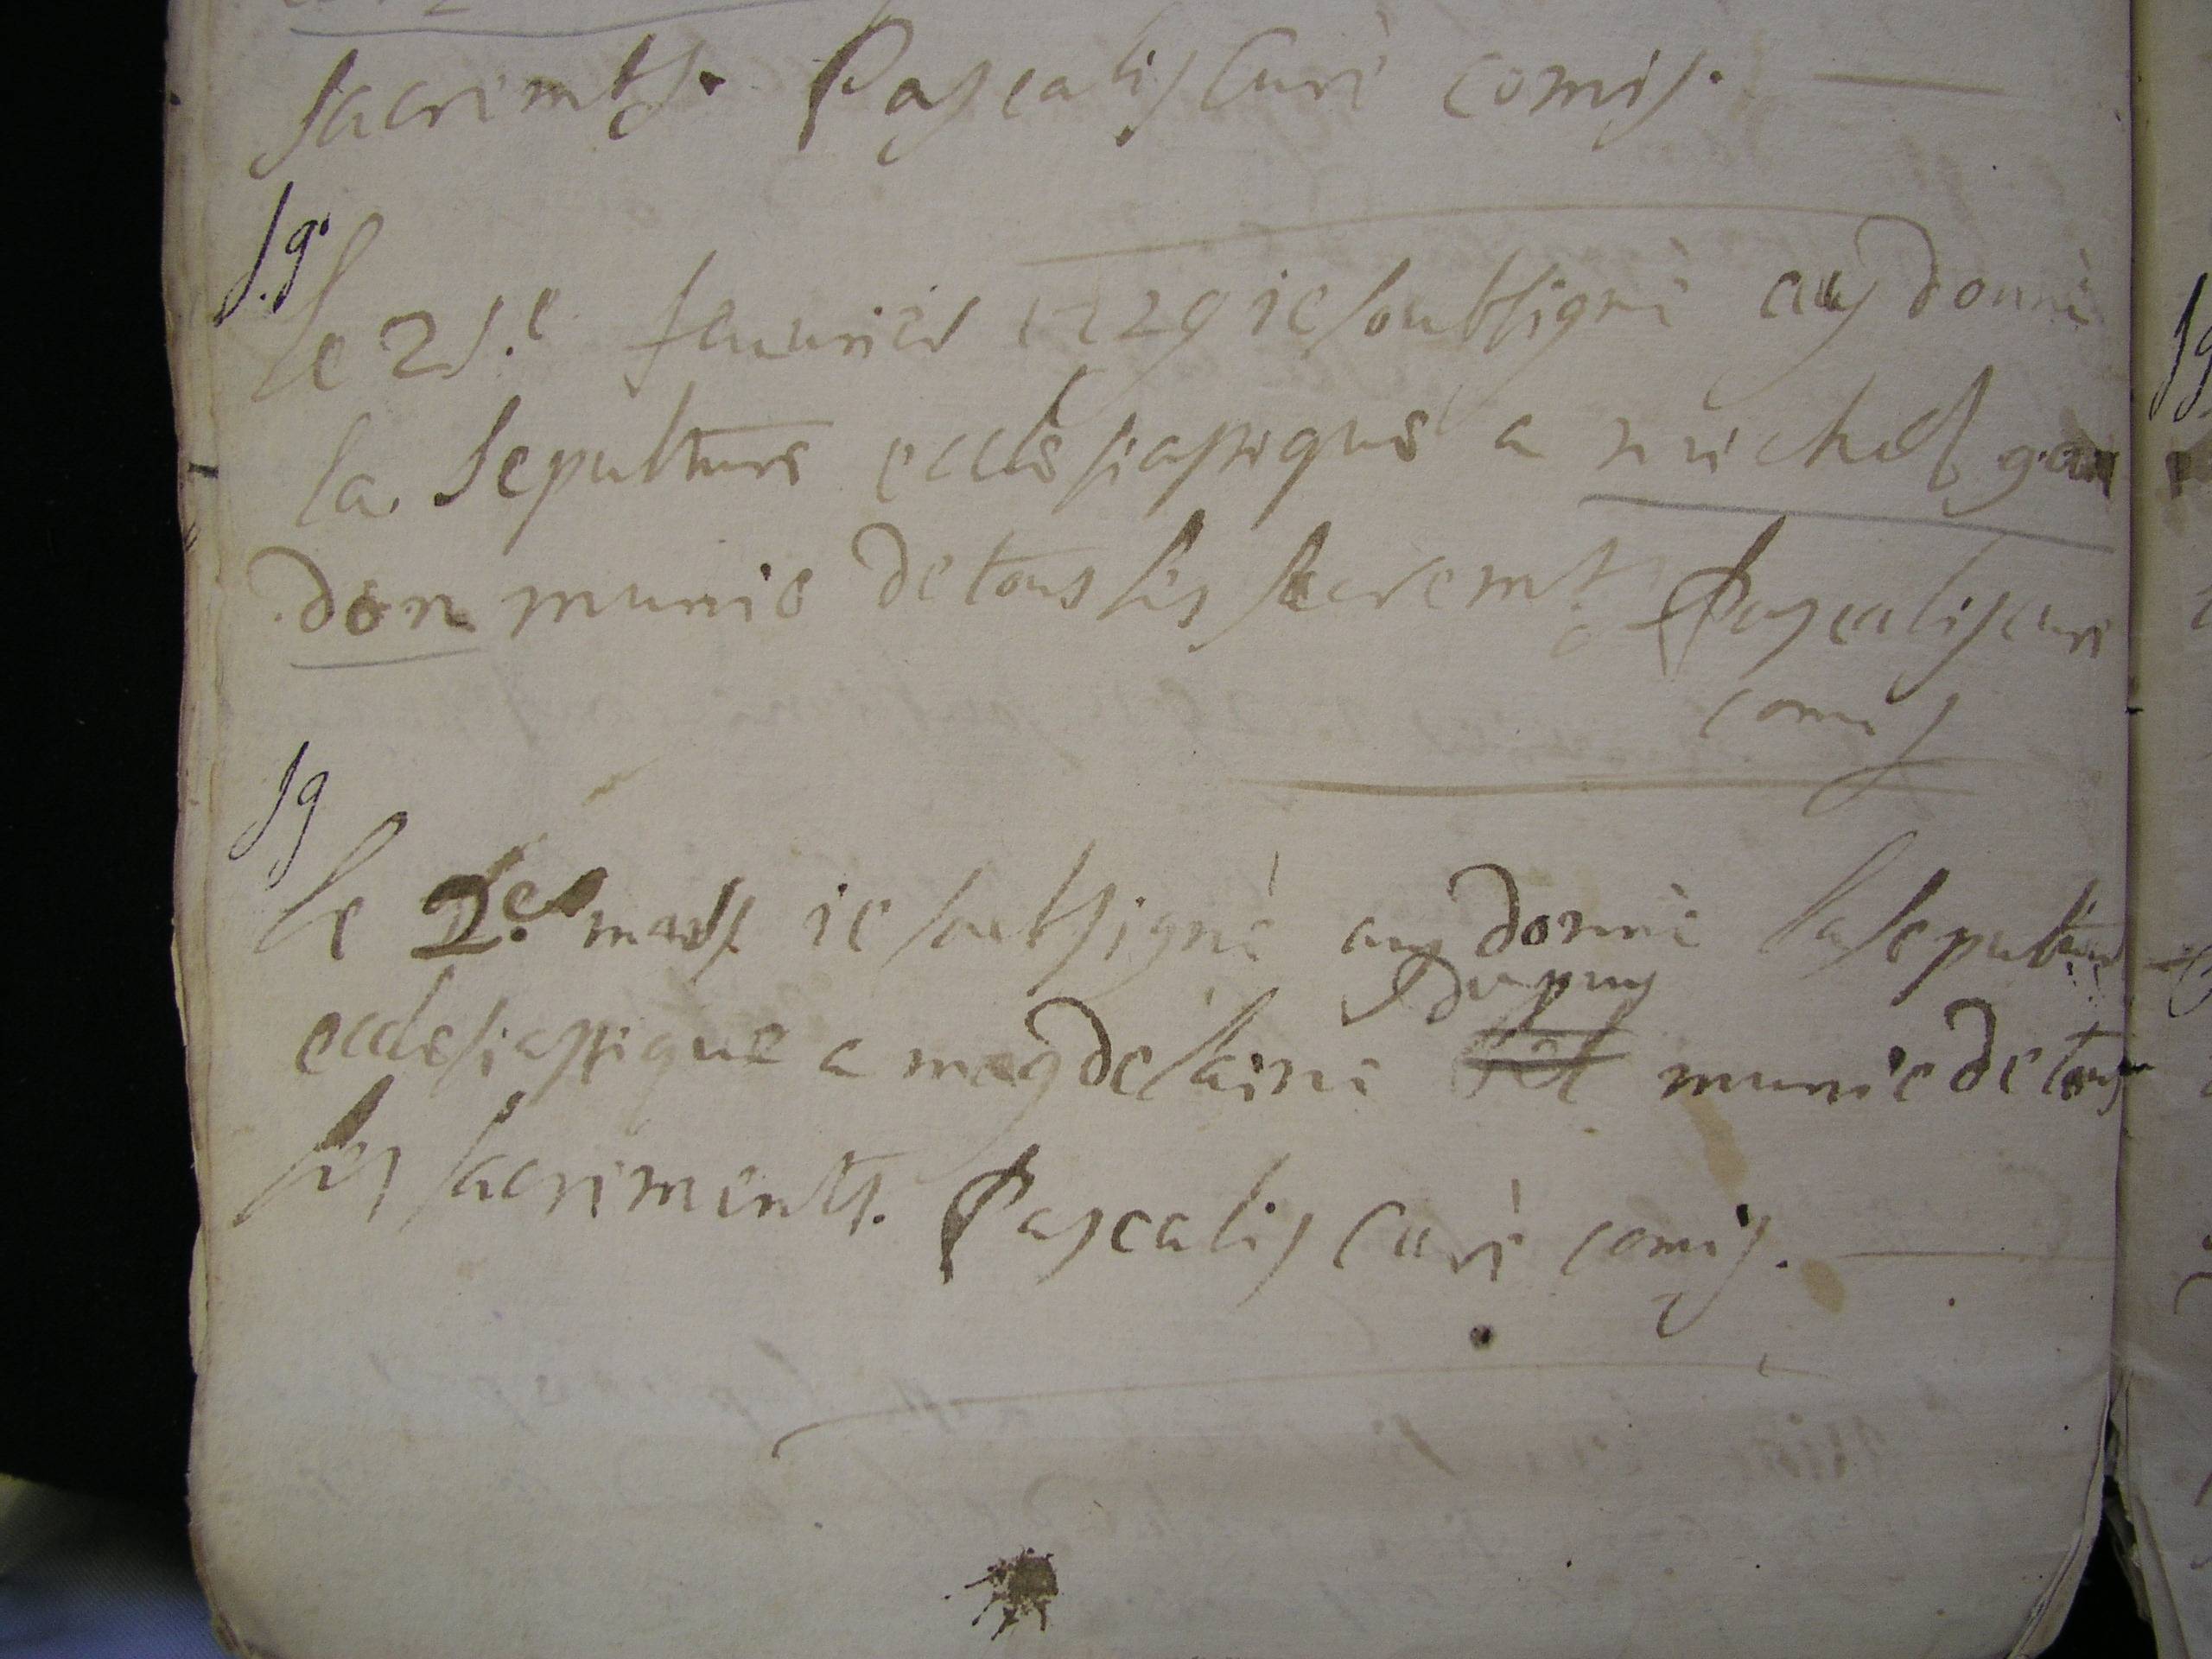 sacremts. Pascalis Curé comis.
sg
le 25.e feuurier 1729 ie soubsigné ay donné
la sepulture ecclesiastique a michel gan
don munie de tous les sacremts Pascalis curé
comis
sg
le 2.e mars ie soubsigné ay donné la sepulture
dupuy
ecclesiastique a magdelaine munie de tous
les sacrements. Pascalis Curé comis.